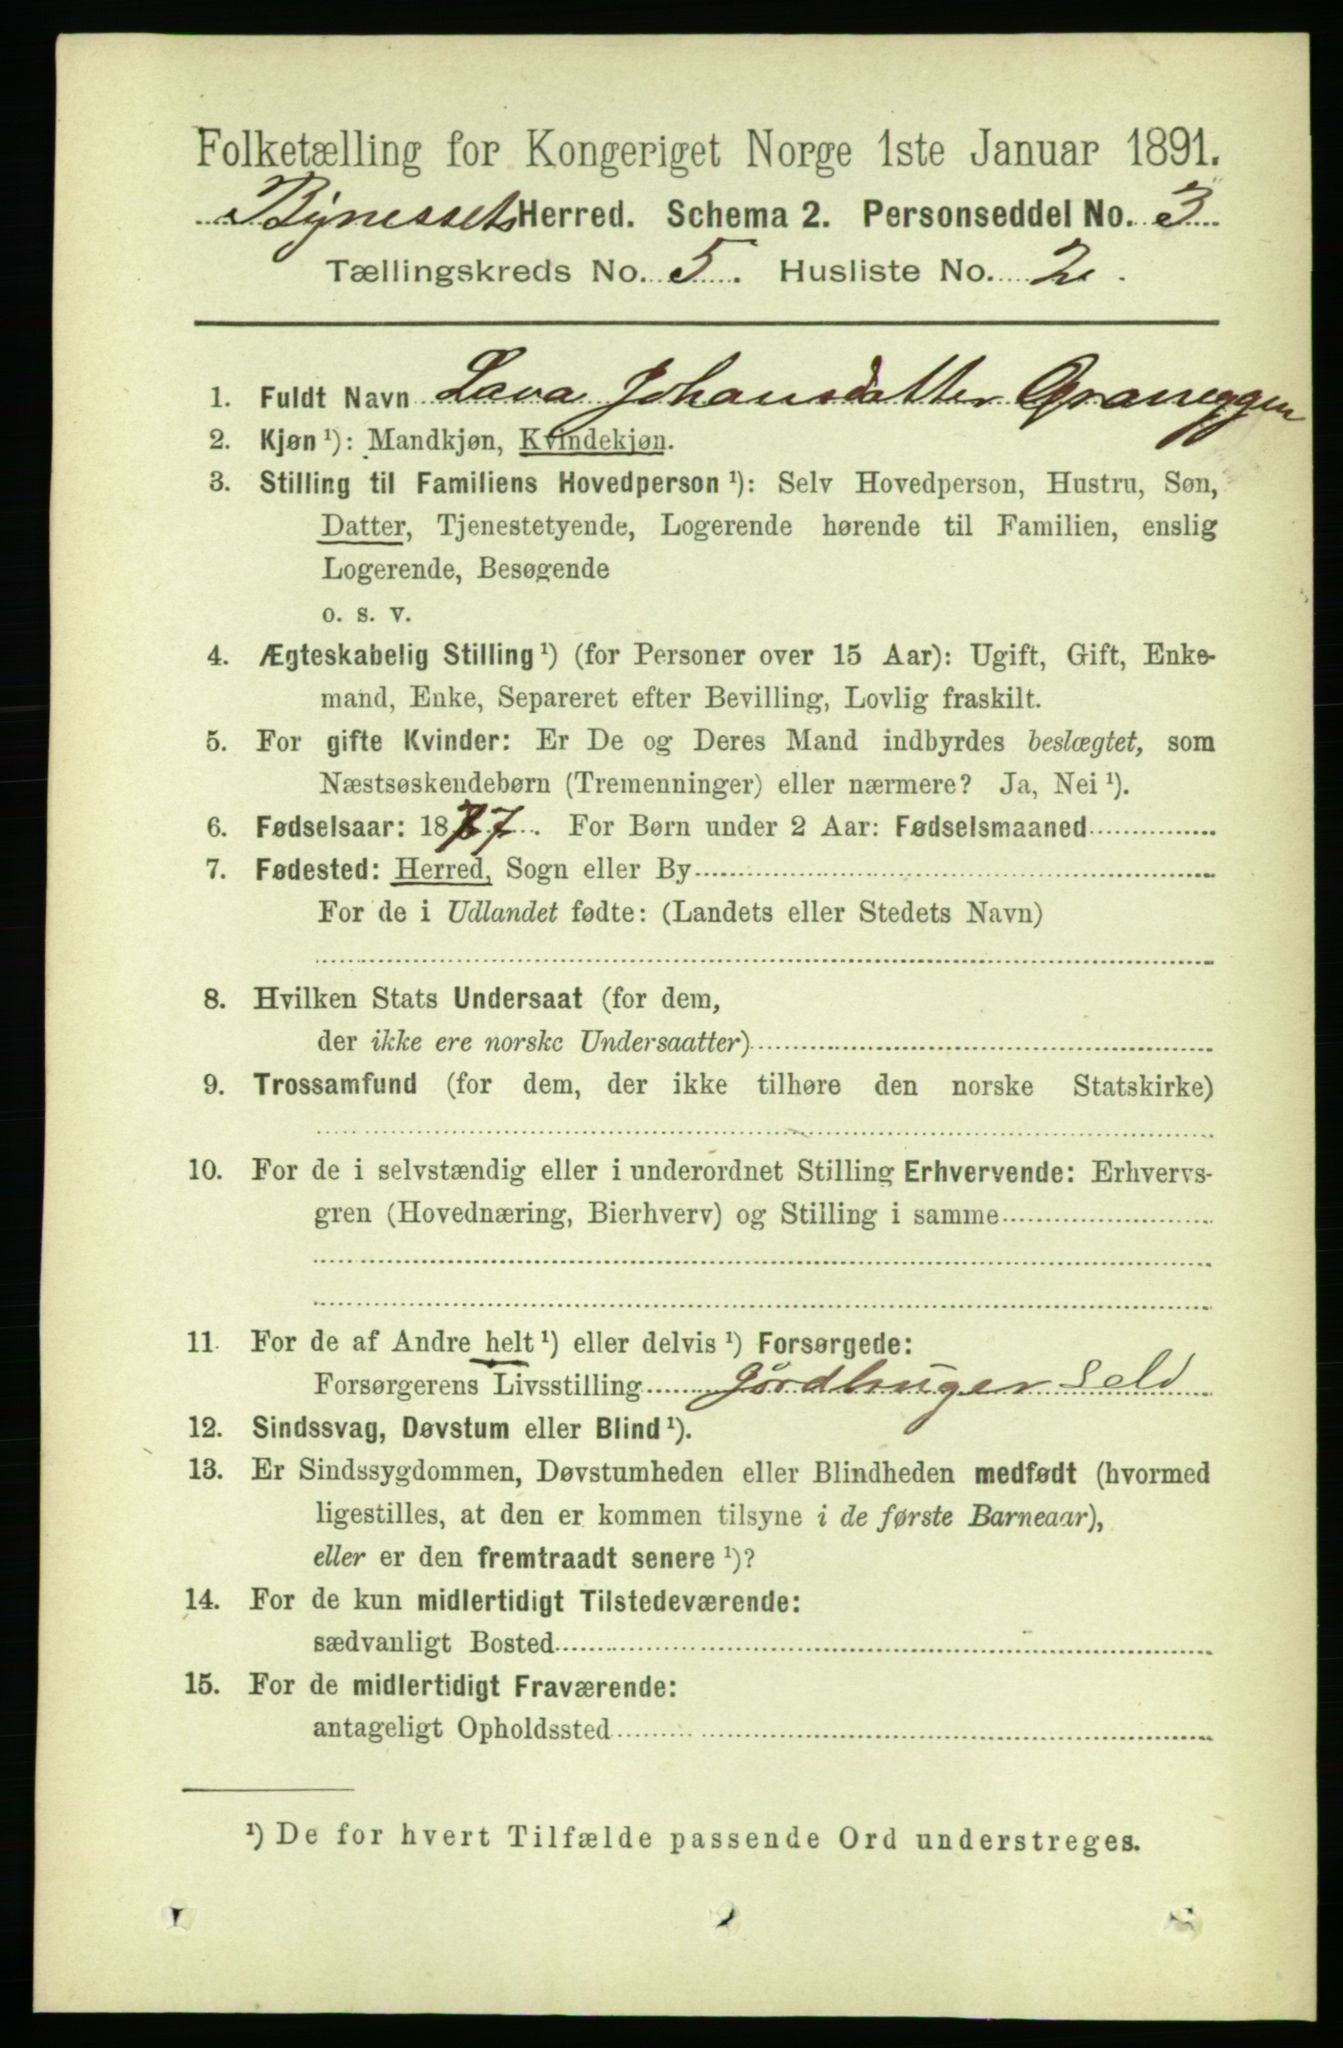 Folketælling for Kongeriget Norge 1ste Januar 1891.
Bynessets Herred. Schema 2. Personseddel No. 3
Tællingskreds No. 5. Husliste No. 2.
1. Fuldt Navn Lava Johansdatter Graneggen
2. Kjøn ¹): Mandkjøn, Kvindekjøn.
3. Stilling til Familiens Hovedperson ¹): Selv Hovedperson, Hustru, Søn,
Datter, Tjenestetyende, Logerende hørende til Familien, enslig
Logerende, Besøgende
o. s. v.
4. Ægteskabelig Stilling ¹) (for Personer over 15 Aar): Ugift, Gift, Enke-
mand, Enke, Separeret efter Bevilling, Lovlig fraskilt.
5. For gifte Kvinder: Er De og Deres Mand indbyrdes beslægtet, som
Næstsøskendebørn (Tremenninger) eller nærmere? Ja, Nei ¹).
6. Fødselsaar: 1877. For Børn under 2 Aar: Fødselsmaaned
7. Fødested: Herred, Sogn eller By
For de i Udlandet fødte: (Landets eller Stedets Navn)
8. Hvilken Stats Undersaat (for dem,
der ikke ere norske Undersaatter)
9. Trossamfund (for dem, der ikke tilhøre den norske Statskirke)
10. For de i selvstændig eller i underordnet Stilling Erhvervende: Erhvervs-
gren (Hovednæring, Bierhverv) og Stilling i samme
11. For de af Andre helt ¹) eller delvis ¹) Forsørgede:
Forsørgerens Livsstilling Jordbruger Seld
12. Sindssvag, Døvstum eller Blind ¹).
13. Er Sindssygdommen, Døvstumheden eller Blindheden medfødt (hvormed
ligestilles, at den er kommen tilsyne i de første Barneaar),
eller er den fremtraadt senere ¹)?
14. For de kun midlertidigt Tilstedeværende:
sædvanligt Bosted
15. For de midlertidigt Fraværende:
antageligt Opholdssted
¹) De for hvert Tilfælde passende Ord understreges.